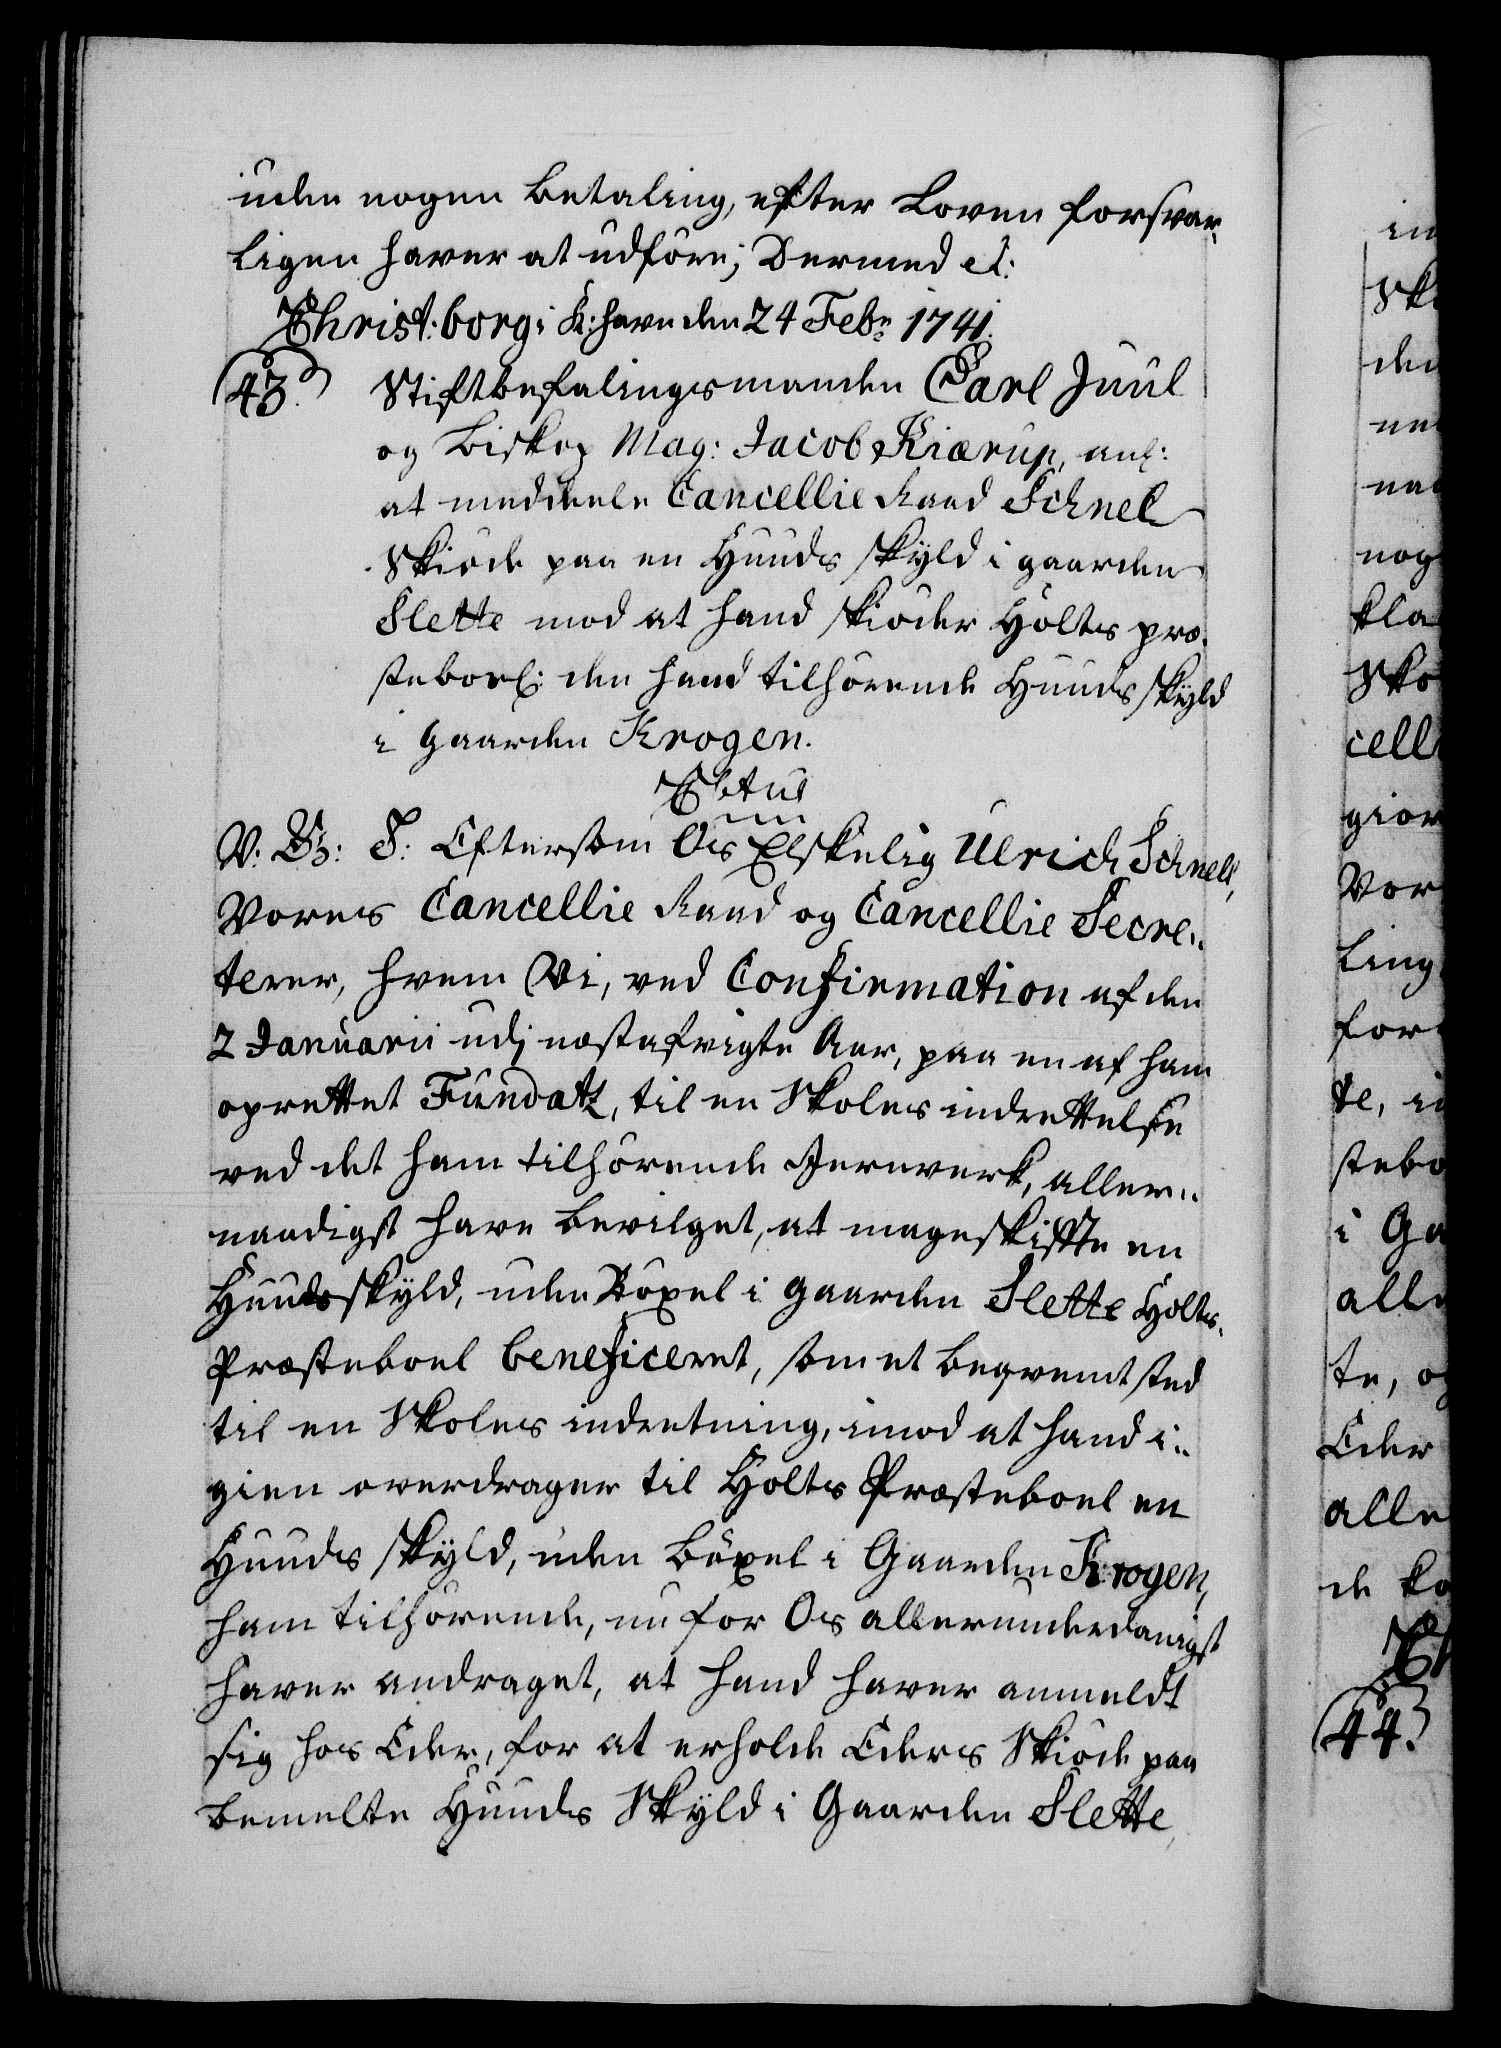 uden nogen betaling, efter Loven forsvar„
ligen haver at udføre; Dermed et:
Christ: borg i K:havn den 24 Febr: 1741.
43. Stiftbefalingsmanden Carl Juul
og Biskop Mag: Jacob Kiærup, anl:
at meddeele Cancellie Raad Schnell
Skiøde paa en Huuds skyld i gaarden
Slette mod at hand skiøder Holts præ„
steboel: den hand tilhørende Huuds skyld
i gaarden Krogen.
V. G: T: Eftersom Os Elskelig Ulrich Schnell,
Vores Cancellie Raad og Cancellie Secre„
terer, hvem Vi, ved Confirmation af den
2 Januarii udj næstafvigte Aar, paa en af ham
oprettet Fundatz, til en Skoles indrettelse
ved det ham tilhørende Jernverk, aller„
naadigst have bevilget, at mageskiffte en
Huudsskyld, uden Bøxel i gaarden Slette Holts„
Præsteboel beneficeret, som et beqvemt sted
til en Skoles indretning, imod at hand i„
gien overdrager til Holts Præsteboel en
Huuds skyld, uden bøxel i Gaarden Krogen,
ham tilhørende, nu for Os allerunderdanigst
haver andraget, at hand haver anmeldt
sig hos Eder, for at erholde Eders Skiøde paa
bemelte Huuds Skyld i Gaarden Slette,
in
Sk
den
nog
kla
Sko
cell
gior
Vor
ling
for
te, i
stebo
i Ga
alle
te, o
Eder
alle
de ko
Ch
44.